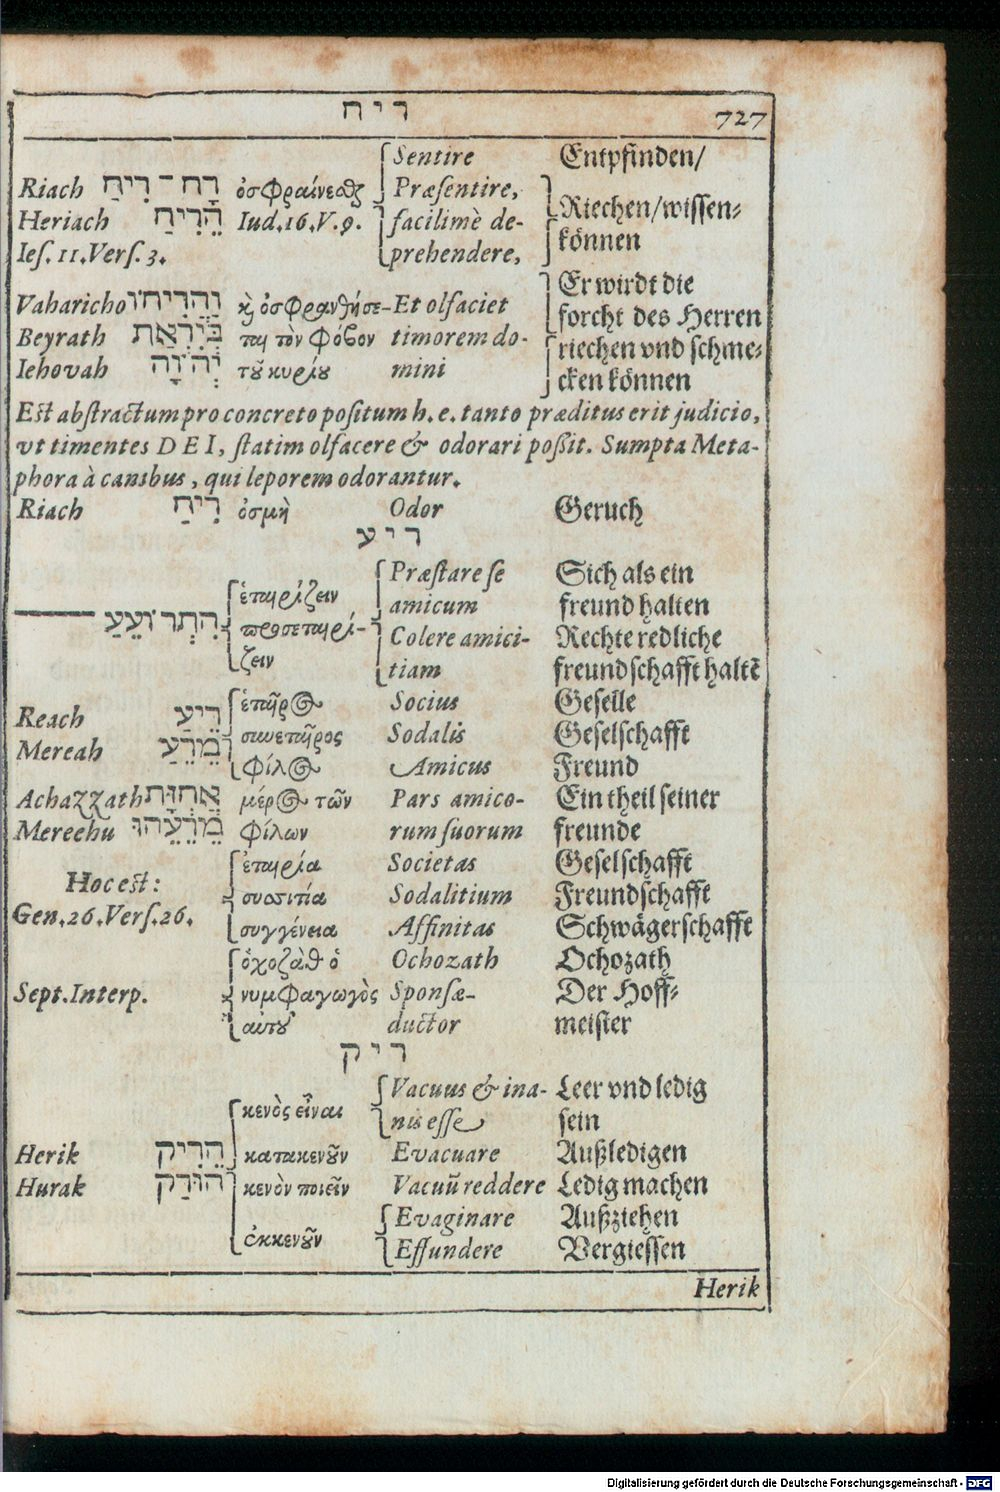 ריח 727
Sentire Entpfinden/
Riach רָח־רִיחַ ὀσφραίνεσθαι Præsentire,
Heriach הֵרִיחַ Iud.16.V.9. facilimè de- Riechen/wissen-
Ies.11.Vers.3. prehendere, können
Er wirdt die
Vaharicho וַהֲרִיחוֹ καὶ ὀσφρανθήσε- Et olfaciet forcht des Herren
Beyrath בְּיִרְאַת ται τὸν φόβον timorem do- riechen vnd schme-
Iehovah יְהוָֹה τοῦ κυρίου mini cken können
Est abstractum pro concreto positum h.e. tanto præditus erit judicio,
vt timentes DEI, statim olfacere & odorari poßit. Sumpta Meta-
phora à canibus, qui leporem odorantur.
Riach רִיחַ ὀσμὴ Odor Geruch
ריע
Præstare se Sich als ein
ἑταιρίζειν amicum freund halten
הִתְרוֹעֵעַ προσεταιρί- Colere amici- Rechte redliche
ζειν tiam freundschafft haltē
ἑταῖρος Socius Geselle
Reach רֵיעַ
συνεταῖρος Sodalis Geselschafft
Mereah מֵרֵעַ
φίλος Amicus Freund
Achazzath אֲחֻזַּת μέρος τῶν Pars amico- Ein theil seiner
Mereehu מֵרֵעֵהוּ φίλων rum suorum freunde
ἑταιρία Societas Geselschafft
Hoc est:
συσσιτία Sodalitium Freundschafft
Gen.26.Vers.26.
συγγένεια Affinitas Schwägerschafft
ὀχοζὰθ ὁ Ochozath Ochozath
Sept.Interp. νυμφαγωγὸς Sponsæ- Der Hoff-
αὐτοῦ ductor meister
ריק
Vacuus & ina- Leer vnd ledig
κενὸς εἶναι nis esse sein
Herik הֵרִיק κατακενοῦν Evacuare Außledigen
Hurak הוּרַק κενὸν ποιεῖν Vacuū reddere Ledig machen
Evaginare Außziehen
ἐκκενοῦν
Effundere Vergiessen
Herik
Digitalisierung gefördert durch die Deutsche Forschungsgemeinschaft - DFG